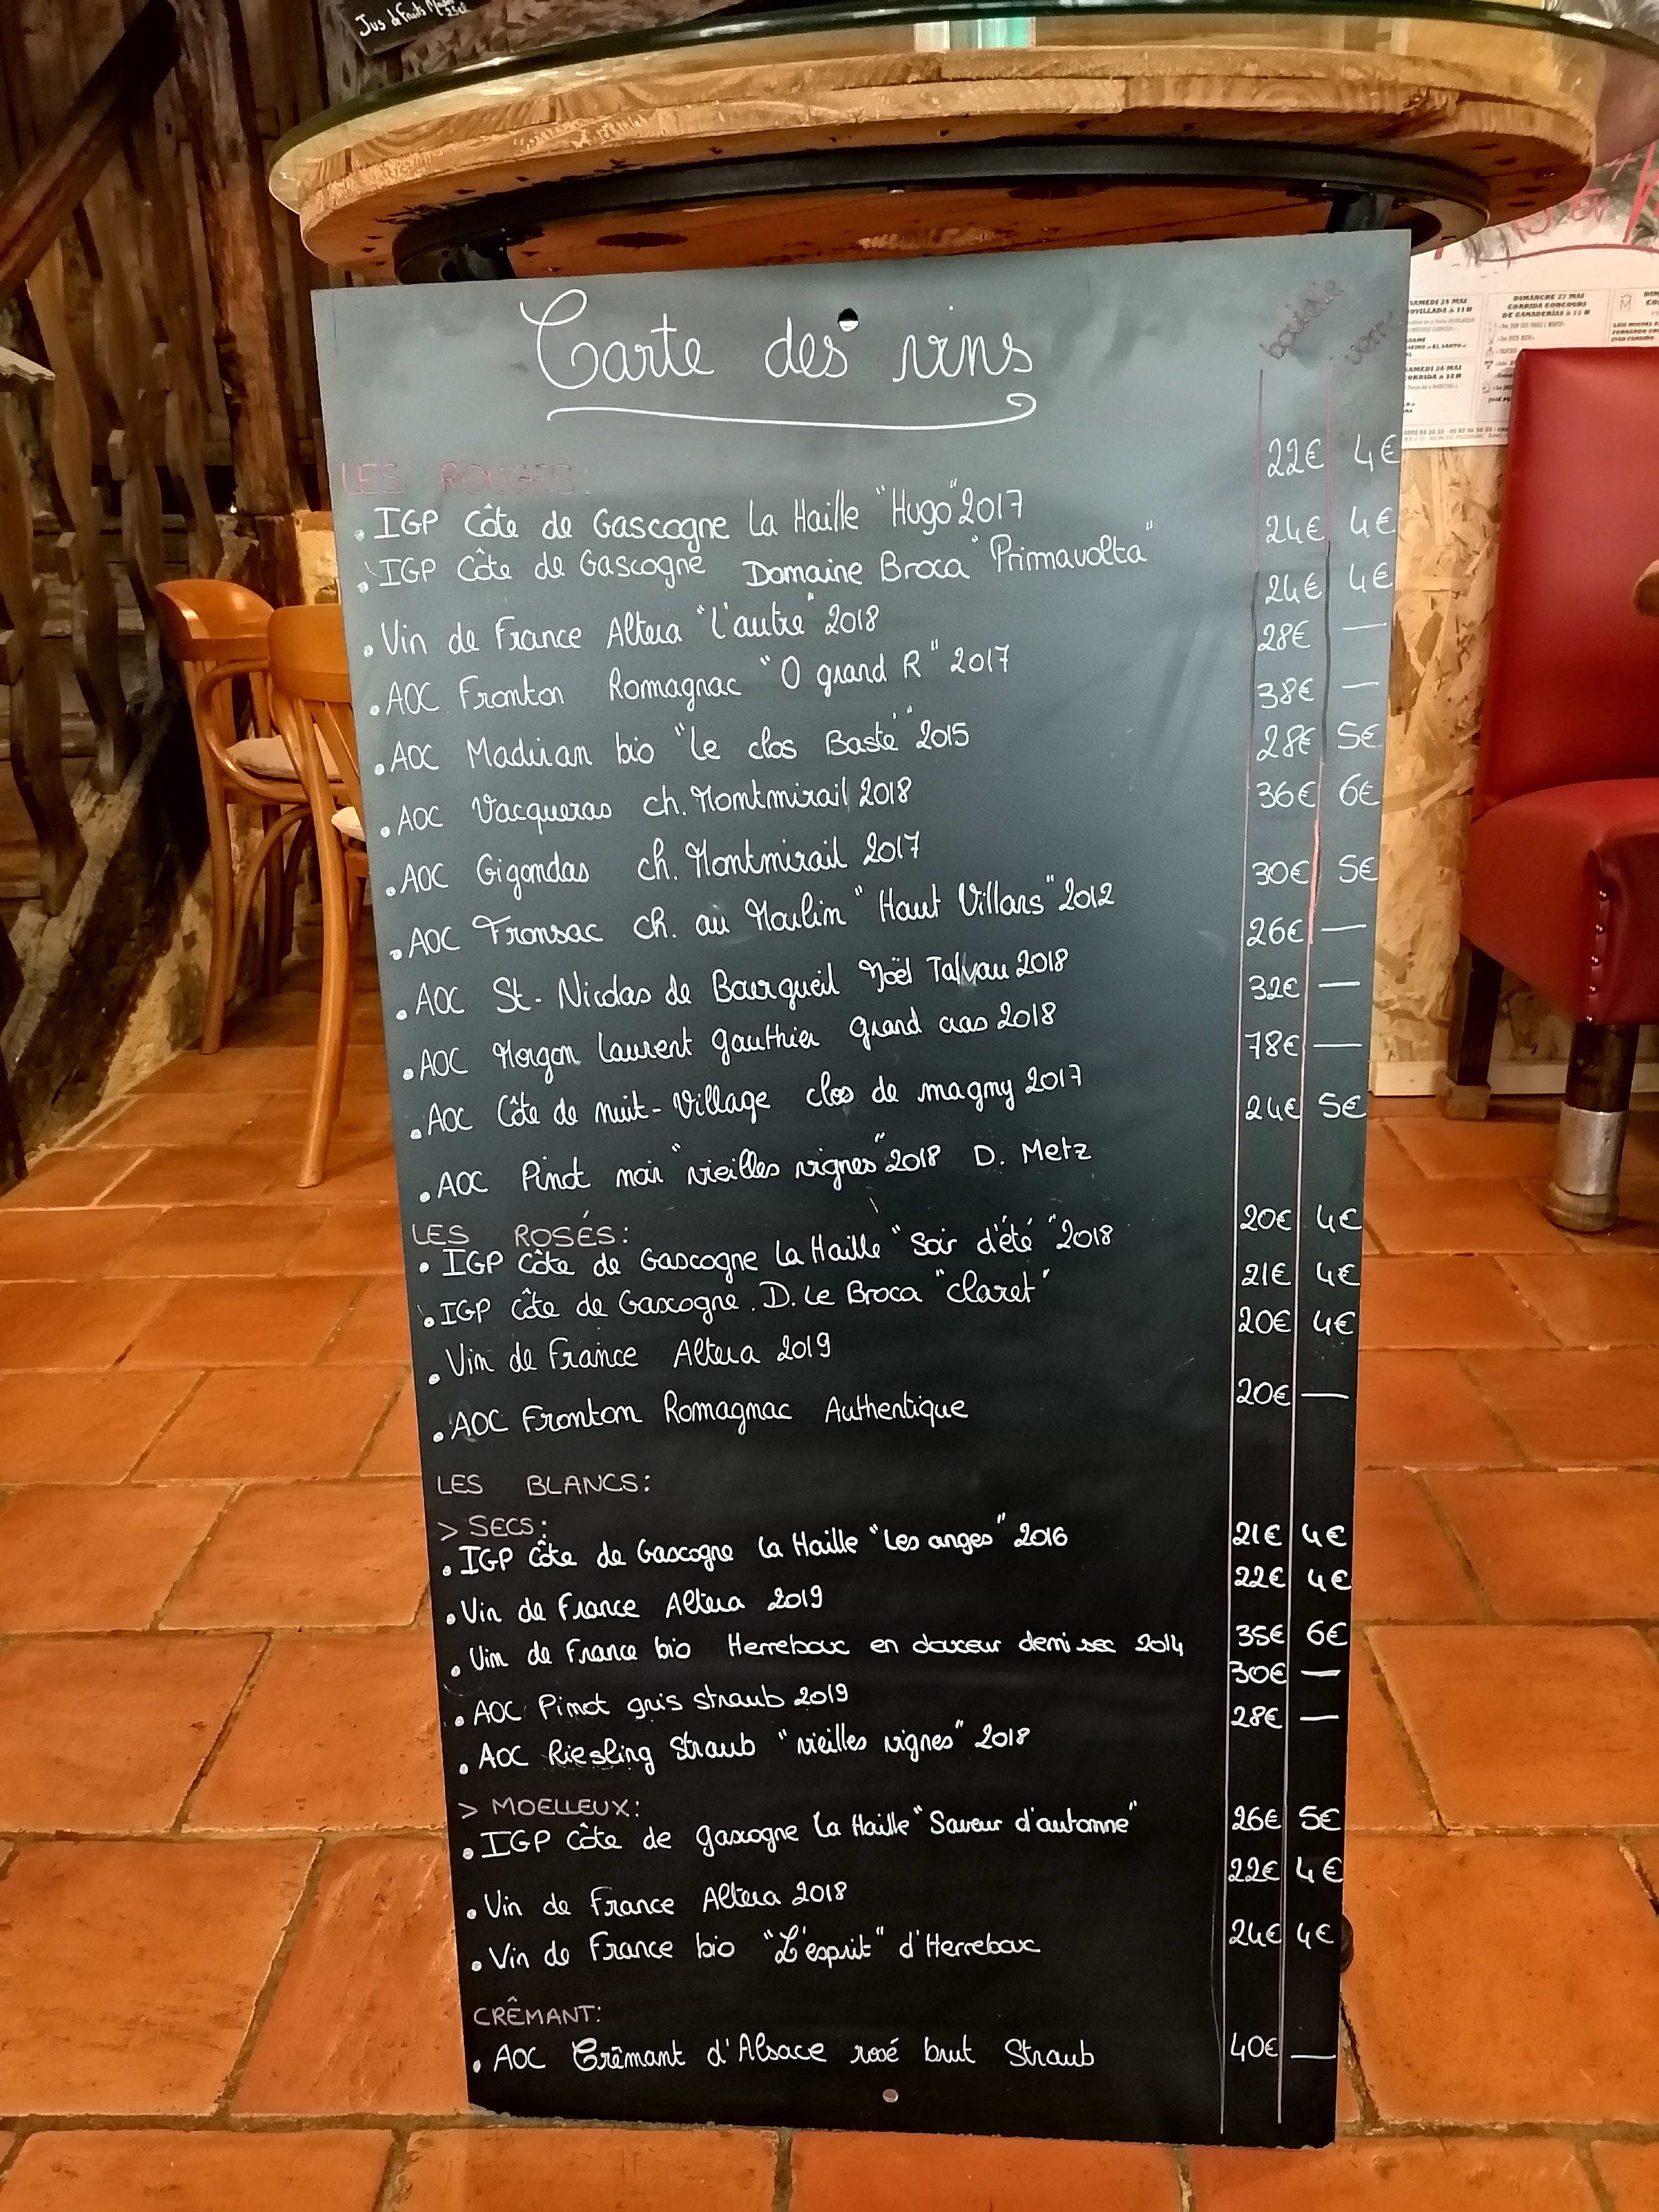 Jus de Fruits
25cl
Carte des vins
bouteille verre
LES ROUGES:
. IGP Côte de Gascogne La Haille "Hugo" 2017 22€ 4€
. IGP Côte de Gascogne Domaine Broca "Primavolta" 24€ 4€
. Vin de France Altera "l'autre" 2018 24€ 4€
. AOC Fronton Romagnac "O grand R" 2017 28€ —
. AOC Madiran bio "le clos Basté" 2015 38€ —
. AOC Vacqueras ch. Montmirail 2018 28€ 5€
. AOC Gigondas ch. Montmirail 2017 36€ 6€
. AOC Fronsac ch. au Moulin "Haut Villars" 2012 30€ 5€
. AOC St. Nicolas de Bourgueil Noël Talvau 2018 26€ —
. AOC Morgon Laurent Gauthier grand cras 2018 32€ —
. AOC Côte de nuit-Village clos de magny 2017 78€ —
. AOC Pinot noir "vieilles vignes" 2018 D. Metz 24€ 5€
LES ROSÉS:
. IGP Côte de Gascogne La Haille "Soir d'été" 2018 20€ 4€
. IGP Côte de Gascogne. D. Le Broca "Claret" 21€ 4€
. Vin de France Altera 2019 20€ 4€
. AOC Fronton Romagnac Authentique 20€ —
LES BLANCS:
> SECS:
. IGP Côte de Gascogne La Haille "Les anges" 2016 21€ 4€
. Vin de France Altera 2019 22€ 4€
. Vin de France bio Herrebouc en douceur demi sec 2014 35€ 6€
. AOC Pinot gris straub 2019 30€ —
. AOC Riesling Straub "vieilles vignes" 2018 28€ —
> MOELLEUX:
. IGP Côte de gascogne La Haille "Saveur d'automne" 26€ 5€
. Vin de France Altera 2018 22€ 4€
. Vin de France bio "L'esprit" d'Herrebouc 24€ 4€
CRÊMANT:
. AOC Crêmant d'Alsace rosé brut Straub 40€ —
SAMEDI 26 MAI
DIMANCHE 27 MAI
CORRIDA CONCOURS
DE GANADERÍAS à 11 H